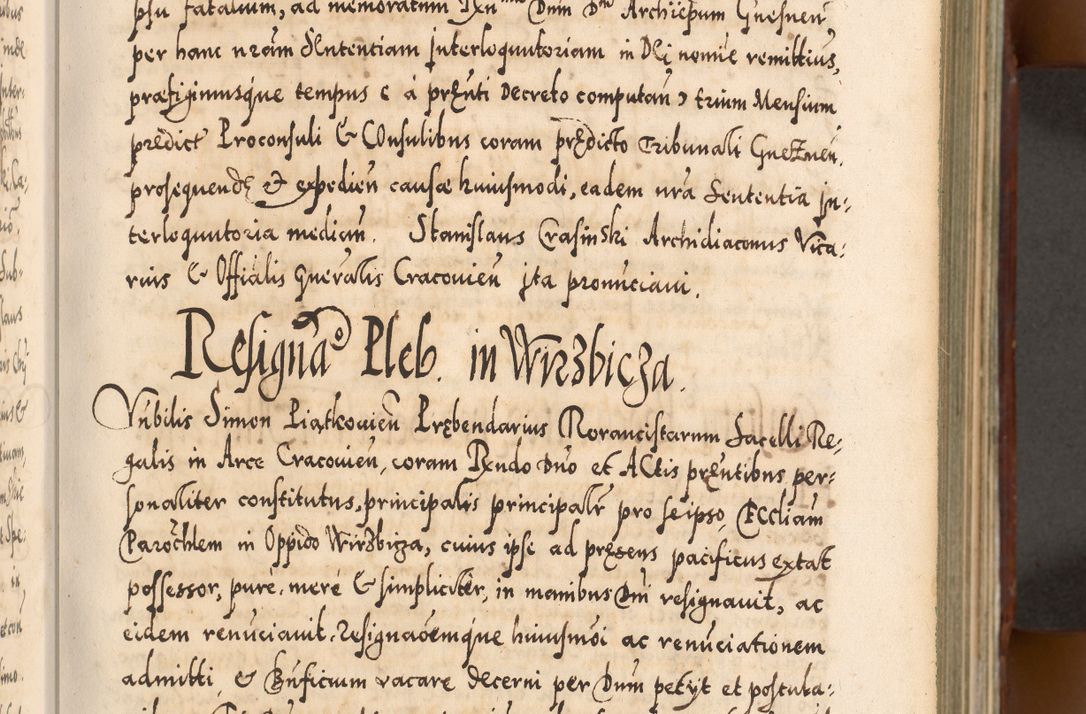 psu fatalium, ad memoratum Dnum Dnm Archiepum Gnesnen
per hanc nram Sententiam Interloquutoriam in Dei nomie remittius,
præfigimusque tempus a prænti Decreto computan trium Mensium
predict Proconsuli & COnsulibus coram prędicto Tribunali Gneznen.
prosequendę et expedien causæ huiusmodi, eadem nra Sententia In-
terloquutoria median. Stanislaus Crasinski Archidiaconus Vica-
rius & Offialis Gneralis Cracouien Ita pronuciaui.
Resignao Pleb. in Wirzbicza.
Vnbilis Simon Piątkouien Prębendarius Rorancistarum Sacelli Re-
galis in Arce Cracouien, coram Rxndo Dno et ACtis præntibus per-
sonalliter constitutus, principalis principalr pro seipso, ECcliam
Parochlem in Oppido Wirzbicza, cuius ipse ad pręsens pacificus extat
possessor, pure, mere & simpliciter, in manibus Dni resignauit, ac
eidem renuciauit. Resignaoemque huiusmoi ac renuciationem
admitti & Bnficium vacare decerni per Dnum petyt et postula-